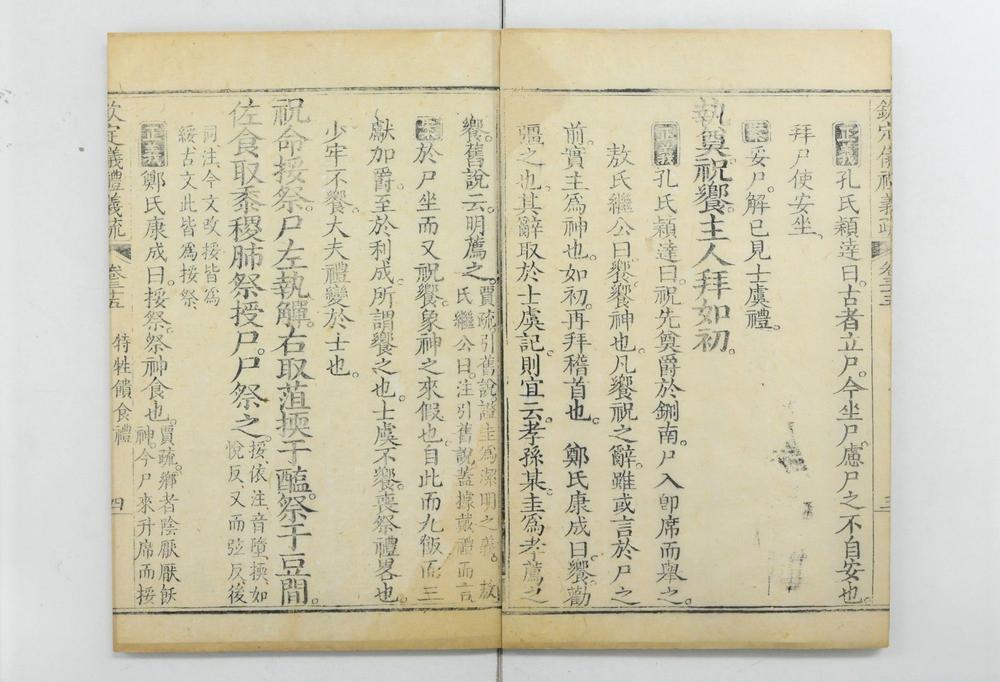 欽定儀禮義疏 卷三十五 三
正義 孔氏穎達曰。古者立尸。今坐尸。慮尸之不自安也。
拜尸使安坐、
案 妥尸。解已見士虞禮。
執奠。祝饗。主人拜如初。
正義 孔氏穎達曰。祝先奠爵於鉶南。尸入卽席而舉之。
敖氏繼公曰。饗。饗神也。凡饗祝之辭。雖或言於尸之
前。實主爲神也。如初。再拜稽首也。 鄭氏康成曰。饗。勸
彊之也。其辭取於士虞記。則宜云。孝孫某。圭爲孝薦之
饗。舊說云。明薦之。賈疏。引舊說。證圭爲潔明之義。 敖
氏繼公曰。注引舊說。蓋據戴禮而言
案 於尸坐而又祝饗。象神之來假也。自此而九飯。而三
獻加爵。至於利成。所謂饗之也。士虞不饗。喪祭禮畧也。
少牢不饗。大夫禮變於士也。
祝命挼祭。尸左執觶。右取菹㨎于醢。祭于豆間。
佐食取黍稷肺祭授尸。尸祭之。挼依注。音墮。㨎。如
悅反。又而弦反。後
同。注。今文改挼皆爲
綏。古文此皆爲挼祭。
正義 鄭氏康成曰。挼祭。祭神食也。賈疏。鄉者陰厭。厭飫
神。今尸來升席而挼
欽定儀禮義疏 卷三十五 特牲饋食禮 四